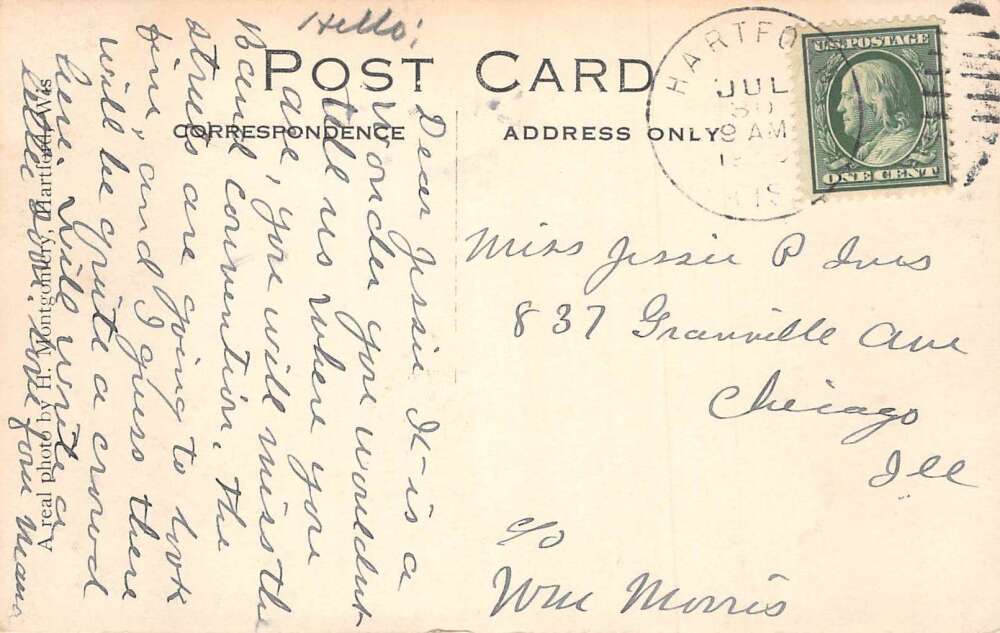 Hello!
POST CARD
CORRESPONDENCE
ADDRESS ONLY
Dear Jessie It is a
wonder you wouldnt
tell us where you
are, you will miss the
Band convention. The
streets are going to look
fine, and I guess there
will be quite a crowd
here. Will write a
little soon. love from Mama
A real photo by H. Montgomery, Hartford, Wis
HARTFO
JUL
30
9 AM
WIS
U.S. POSTAGE
ONE CENT
Miss Jessie P Ives
837 Granville Ave
Chicago
Ill
c/o
Wm Morris